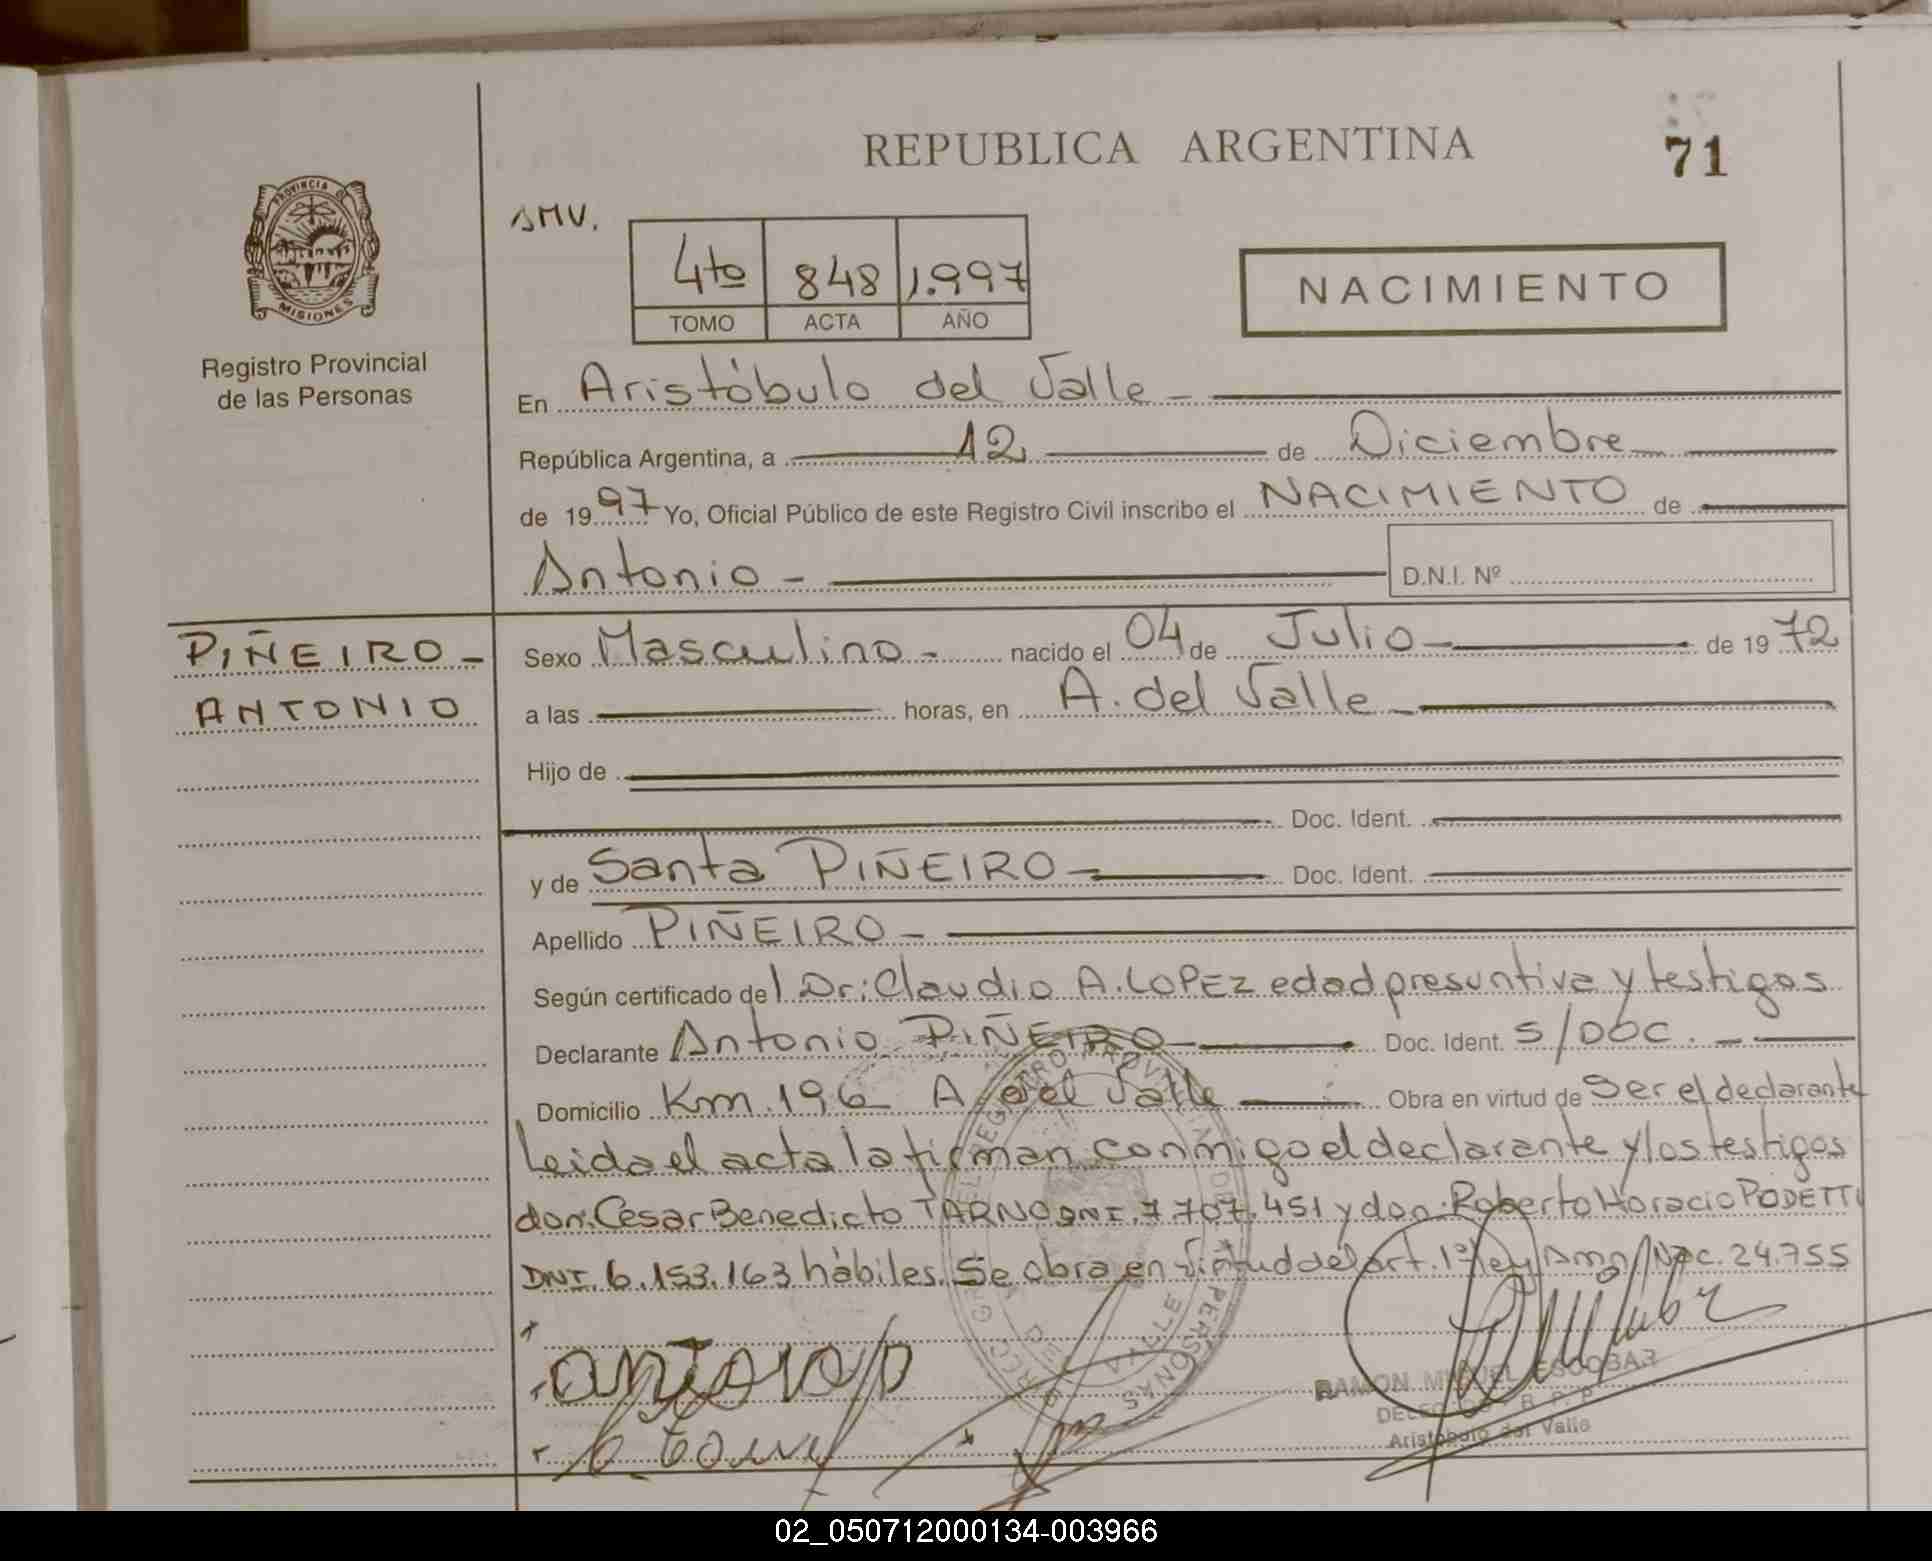 REPUBLICA ARGENTINA
71
PROVINCIA DE
MISIONES
Registro Provincial
de las Personas
SMV.
4to 848 1.997
TOMO ACTA AÑO
NACIMIENTO
En Aristóbulo del Valle -
República Argentina, a 12 de Diciembre
de 1997 Yo, Oficial Público de este Registro Civil inscribo el NACIMIENTO de
Antonio -
D.N.I. Nº
PIÑEIRO -
ANTONIO
Sexo Masculino - nacido el 04 de Julio - de 1972
a las horas, en A. del Valle -
Hijo de
Doc. Ident.
y de Santa PIÑEIRO - Doc. Ident.
Apellido PIÑEIRO -
Según certificado del Dr: Claudio A. LOPEZ edad presuntiva y testigos
Declarante Antonio PIÑEIRO - Doc. Ident. S/DOC. -
Domicilio Km. 196 A del Valle Obra en virtud de Ser el declarante
Leida el acta la firman conmigo el declarante y los testigos
don: César Benedicto TARNO DNI. 7.707.451 y don: Roberto Horacio PODETTI
DNI. 6.153.163 hábiles. Se obra en virtud del art. 1º ley Nac. 24.755
antonio
RAMON MIGUEL ESCOBAR
DELEGADO - R. P. P.
Aristóbulo del Valle
02_050712000134-003966